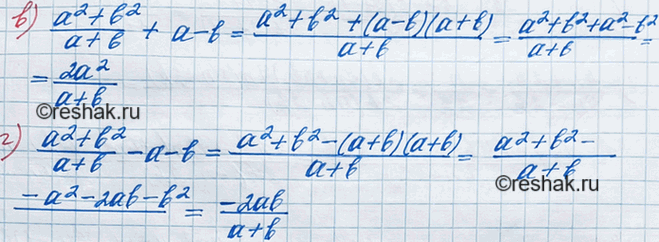 в) (a²+b²)/(a+b) + a-b = (a²+b²+(a-b)(a+b))/(a+b) = (a²+b²+a²-b²)/(a+b) =
= 2a²/(a+b)
©reshak.ru
г) (a²+b²)/(a+b) -a-b = (a²+b²-(a+b)(a+b))/(a+b) = (a²+b²-)/(a+b)
©reshak.ru
-a²-2ab-b² = -2ab/(a+b)